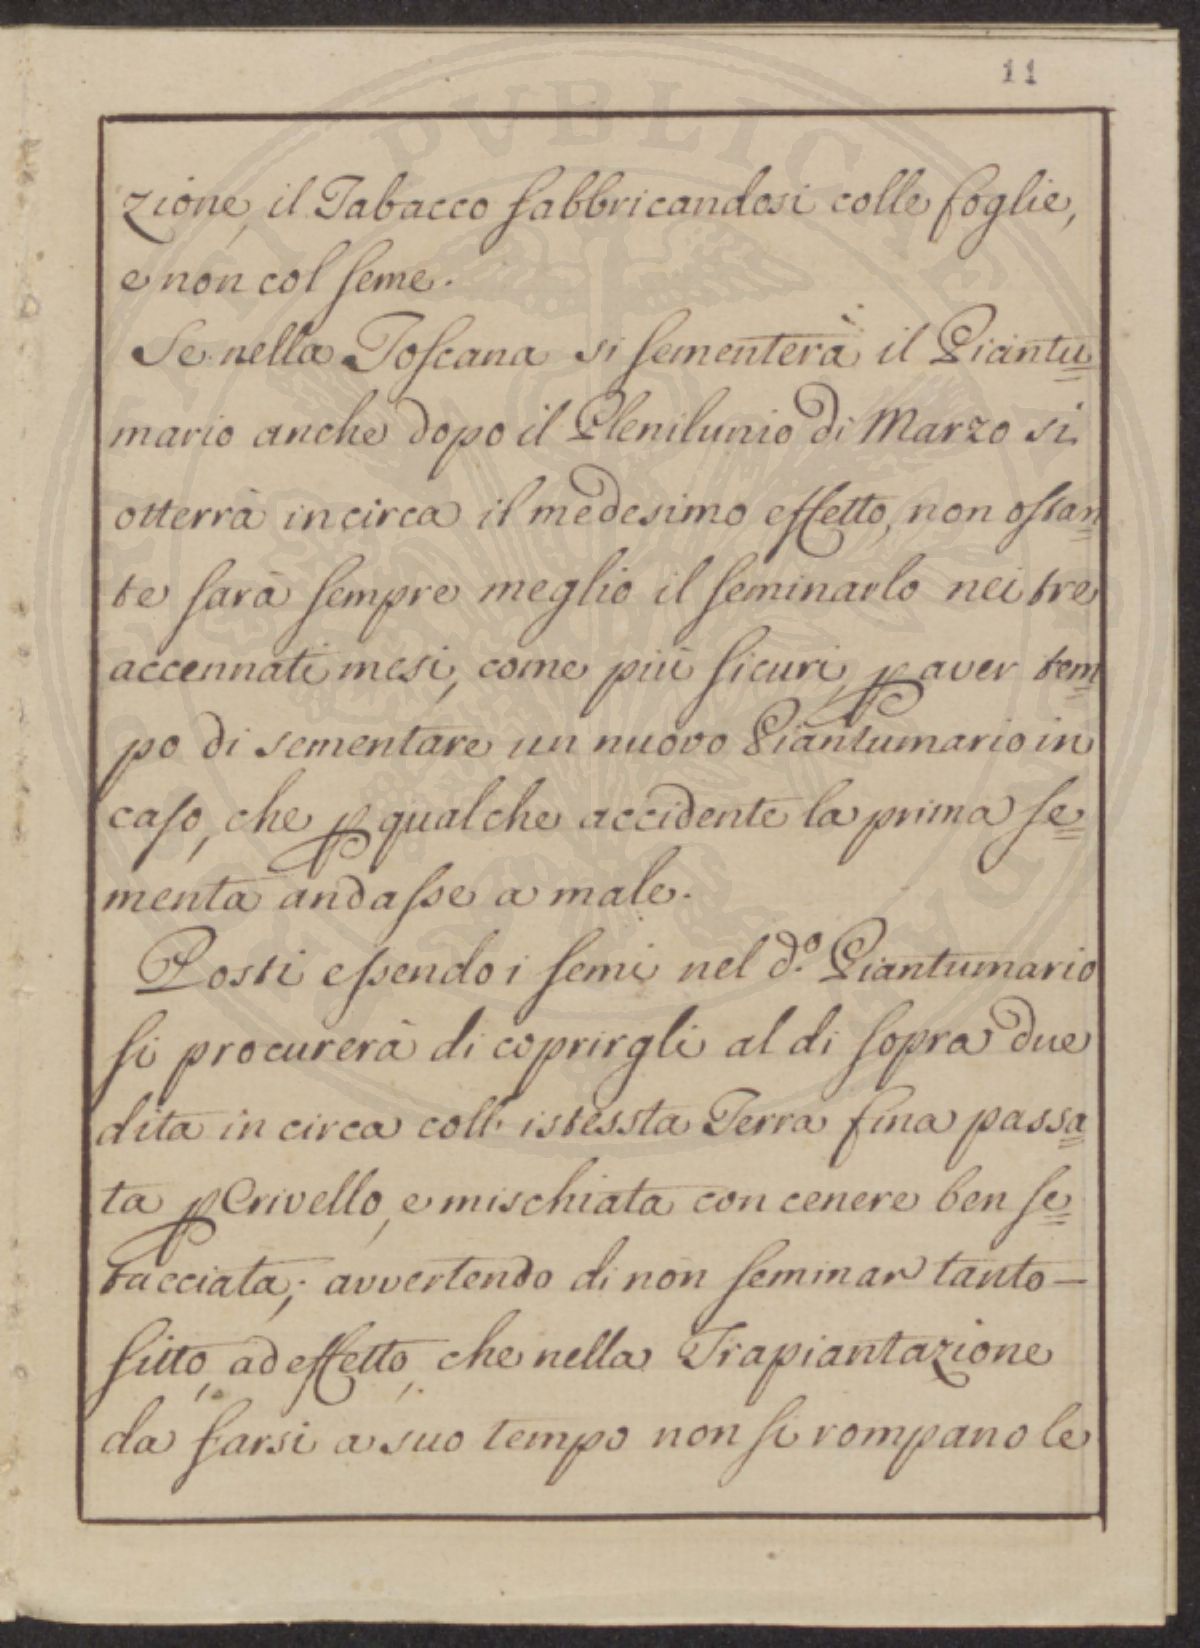 11
zione, il Tabacco fabbricandosi colle foglie,
e non col seme.
Se nella Toscana si sementerà il Piantu=
mario anche dopo il Plenilunio di Marzo si
otterrà incirca il medesimo effetto, non ostan=
te sarà sempre meglio il seminarlo nei tre
accennati mesi, come più sicuri, p aver tem=
po di sementare un nuovo Piantumario in
caso, che p qualche accidente la prima se=
menta andasse a male.
Posti essendo i semi nel d.º Piantumario
si procurerà di coprirgli al di sopra due
dita in circa coll' istessta Terra fina passa=
ta p Crivello, e mischiata con cenere ben se=
tacciata; avvertendo di non seminar tanto—
fitto, ad effetto, che nella Trapiantazione
da farsi a suo tempo non si rompano le